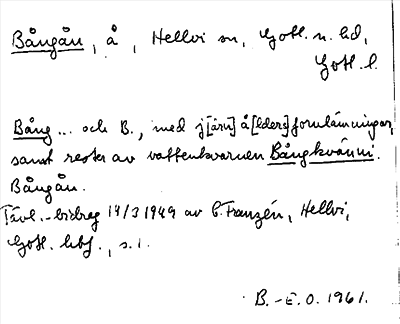 Bångån, å, Hellvi sn, Gotl. n. hd,
Gotl. l.
Bång ... och B., med j[ärn]å[lders]fornlämningar,
samt rester av vattenkvarnen Bångkvänni.
Bångån.
Tävl.-bidrag 14/3 1949 av C. Franzén, Hellvi,
Gotl. hbf., s. 1.
B.-E. O. 1961.